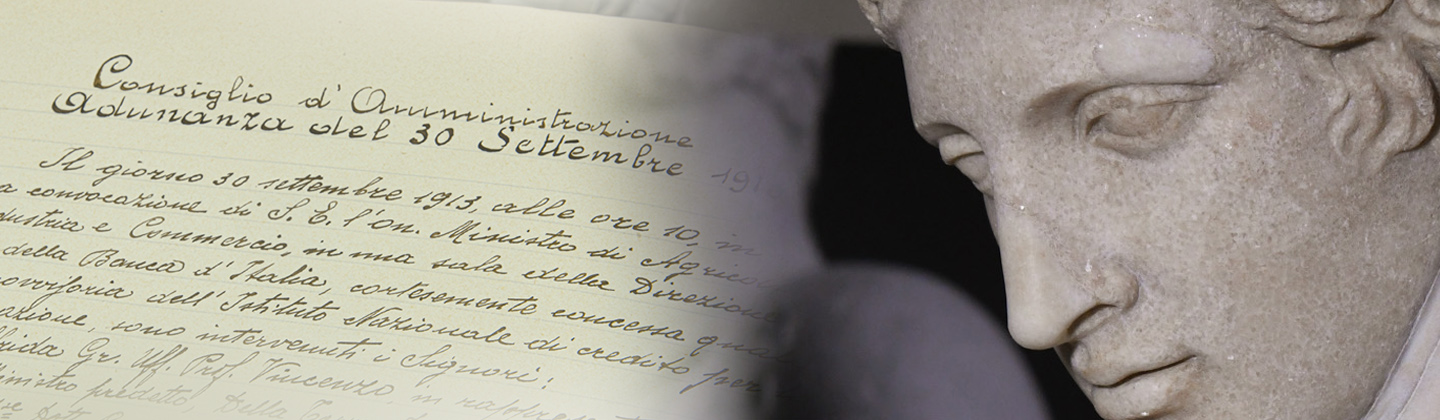 Consiglio d'Amministrazione
Adunanza del 30 Settembre 191
Il giorno 30 settembre 1913, alle ore 10, in
a convocazione di S. E. l'on. Ministro di Agrico
dustria e Commercio, in una sala della Direzione
della Banca d'Italia, cortesemente concessa qua
ovvisoria dell'Istituto Nazionale di credito per
azione, sono intervenuti i Signori:
Gr. Uff. Prof. Vincenzo, in
inistro predetto,